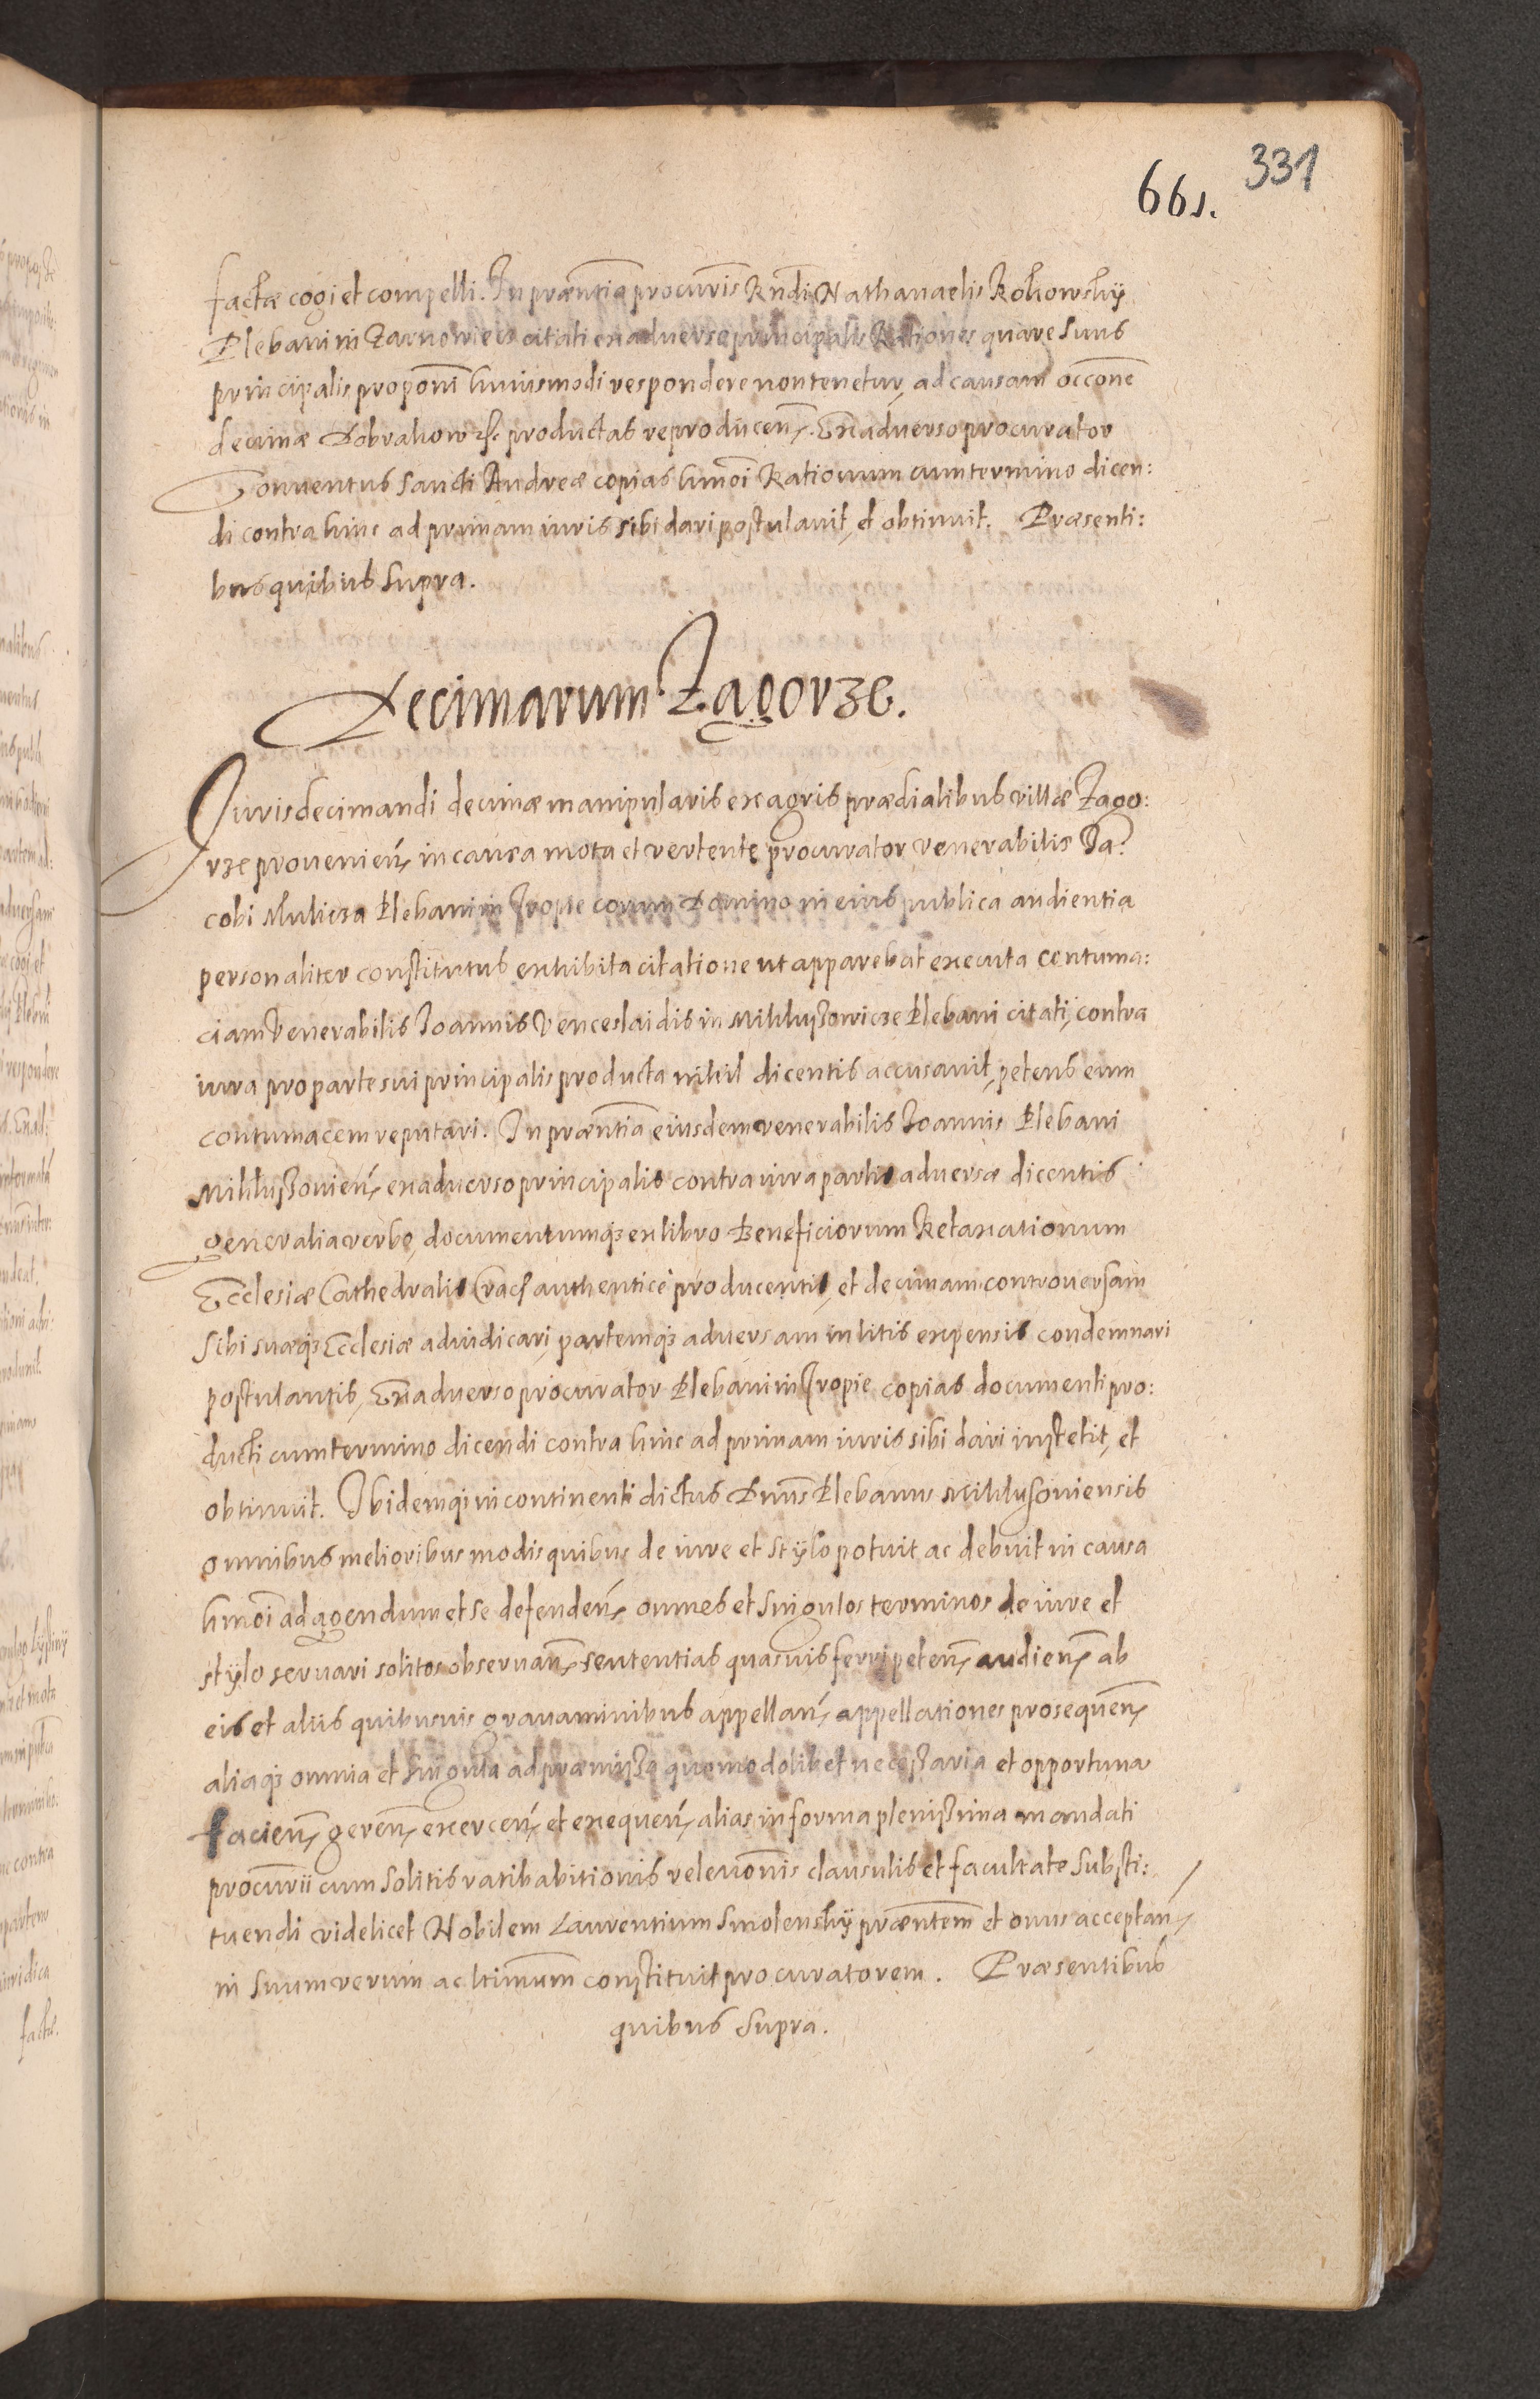 661. 331
factæ cogi et compelli. In præntia procuris Rndi Nathanaelis Kohowsky
Plebani in Zarnowiecz citati ex adverso principalis Rationes quare suus
principalis proponi huiusmodi respondere non tenetur, ad causam occone
decimæ Dobrakow &c. productas reproducen. Ex adverso procurator
Conuentus Sancti Andreæ copias hmoi Rationum cum termino dicen:
di contra hinc ad primam iuris sibi dari postulauit, et obtinuit. Præsenti:
bus quibus supra.
Decimarum Zagorze.
Juris decimandi decimæ manipularis ex agris prædialibus villæ Zago:
rze prouenien, in causa mota et vertente procurator venerabilis Ja:
cobi Plebani in Iropie coram Domino in eius publica audientia
personaliter constitutus exhibita citatione ut apparebat executa contuma:
ciam Venerabilis Joannis Venceslaidis in Mikluszowicze Plebani citati, contra
iura pro parte sui principalis producta nihil dicentis accusauit, petens eum
contumacem reputari. In præntia eiusdem venerabilis Joannis Plebani
Mikluszouien, ex aduerso principalis contra iura partis aduersæ dicentis
generalia verbo, documentumq3 ex libro Beneficiorum Retaxationum
Ecclesiæ Cathedralis Crac authenticè producentis, et decimam controuersam
sibi suæq3 Ecclesiæ adiudicari, partemq3 aduersam in litis expensis condemnari
postulantis, Ex aduerso procurator Plebani in Iropie copias documenti pro:
ducti cum termino dicendi contra hinc ad primam iuris sibi dari institit, et
obtinuit. Ibidemq3 in continenti dictus Dnus Plebanus Miklusouiensis
omnibus melioribus modis quibus de iure et stylo potuit ac debuit in causa
hmoi ad agendum et se defenden, omnes et singulos terminos de iure et
stylo seruari solitos obseruan, sententias quasuis ferri peten, audien, ab
eis et aliis quibusuis grauaminibus appellan, appellationes prosequen,
aliaq3 omnia et singula ad præmissa quomodolibet necessaria et opportuna
facien, geren, exercen, et exequen, alias in forma plenissima mandati
procurii cum solitis ratihabitionis releuonis clausulis et facultate substi:
tuendi videlicet Nobilem Laurentium Smolensky præntem et onus acceptan,
in suum verum ac ltimum constituit procuratorem. Præsentibus
quibus supra.